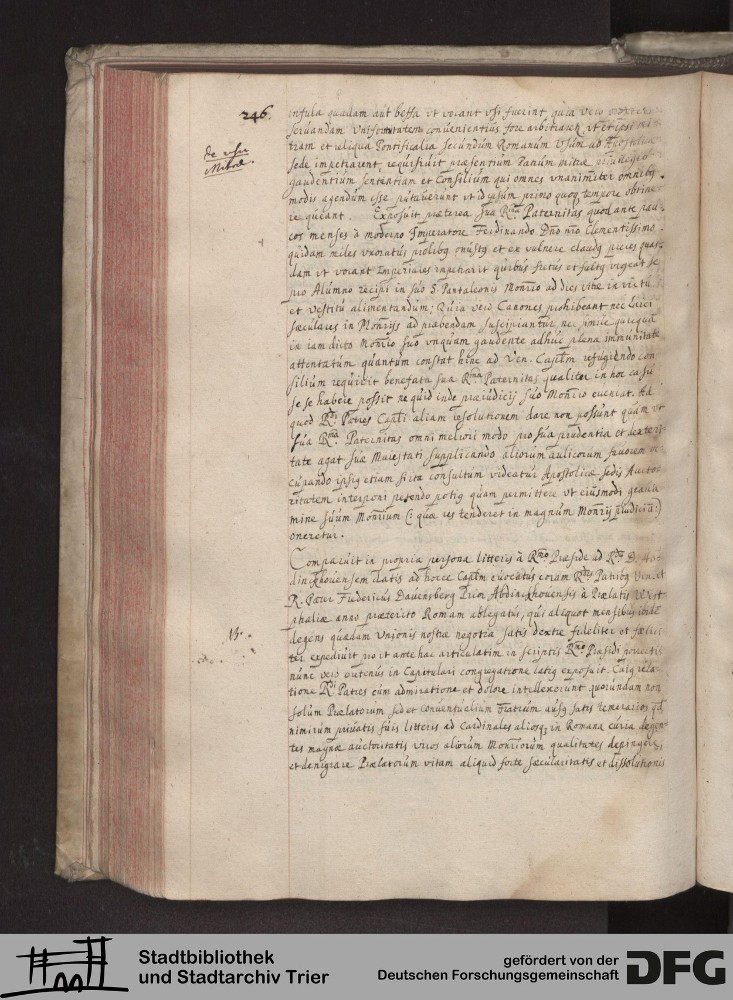 246.
de usu
Mitrae.
infula quadam aut bessa ut vocant usi fuerint, quia vero
servandam Uniformitatem convenientius fore arbitratur, ut et ipsi mi-
tram et reliqua Pontificalia secundum Romanum Usum ab Apostolica
sede impetrarent, requisivit praesentium Zanum mitrae privilegio
gaudentium sententiam et Consilium qui omnes unanimiter omnibus
modis agendum esse putaverunt ut id ipsum primo quoque tempore obtine-
re queant. Exposuit praeterea sua Rma Paternitas quod ante pau-
cos menses à moderno Imperatore Ferdinando Dno nro Clementissimo
quidam miles uxoratus prolibus onustus et ex vulnere claudus preces quas-
dam ut vocant Imperiales impetrarit quibus fretus et fultus urgeat se
pro Alumno recipi in suo S. Pantaleonis Monrio ad dies vitae in victu
et vestitu alimentandum; Iura vero Canones prohibeant nec laici
saeculares in Monrijs ad praebendam suscipiantur, nec simile quicquam
in iam dicto Monrio suo unquam gaudente adhuc plena immunitate
attentatum quantum constat hinc ad Ven. Captm refugiendo con-
silium requirit benefata sua Rma Paternitas qualiter in hoc casu
se se habere possit ne quid inde praeiudicij suo Monrio eveniat. Ad
quod Rdi Patres Captli aliam resolutionem dare non possunt quam ut
sua Rma Paternitas omni meliori modo pro sua prudentia et dexteri-
tate agat suae Maiestati supplicando aliorum aulicorum favorem
curando ipsis etiam si ita consultum videatur Apostolicae sedis Aucto-
ritatem interponi petendo potius quam permittere ut eiusmodi grava-
mine suum Monrium (: quae res tenderet in magnum Monrij piudicium :)
oneretur.
Comparuit in propria persona litteris à Rmo Praeside ad Rdu D. Ab-
dinckhovensem datis ad hocce Captm evocatus coram Rdis Patribus Ven. et
R. Pater Fredericus Davensberg Prior Abdinckhovensis à Praelatis West-
phaliae anno praeterito Romam ablegatus, qui aliquot mensibus ibide
degens quaedam Unionis nostrae negotia satis dextre fideliter et faelici-
ter expedivit pro ut antehac articulatim in scriptis Rmo Praesidi porrectis
nunc vero viva in Capitulari congregatione latius exposuit. Cuius rela-
tione Rdi Patres cum admiratione et dolore intellexerunt quorundam non
solum Praelatorum sed et Conventualium Fratrum ausus satis temerarios qd
nimirum privatis suis litteris ad Cardinales aliosque in Romana curia degen-
tes magnae auctoritatis viros aliorum Monriorum qualitates depingere,
et denigrare Praelatorum vitam aliquid forte saecularitatis et dissolutionis
Stadtbibliothek
und Stadtarchiv Trier
gefördert von der
Deutschen Forschungsgemeinschaft
DFG